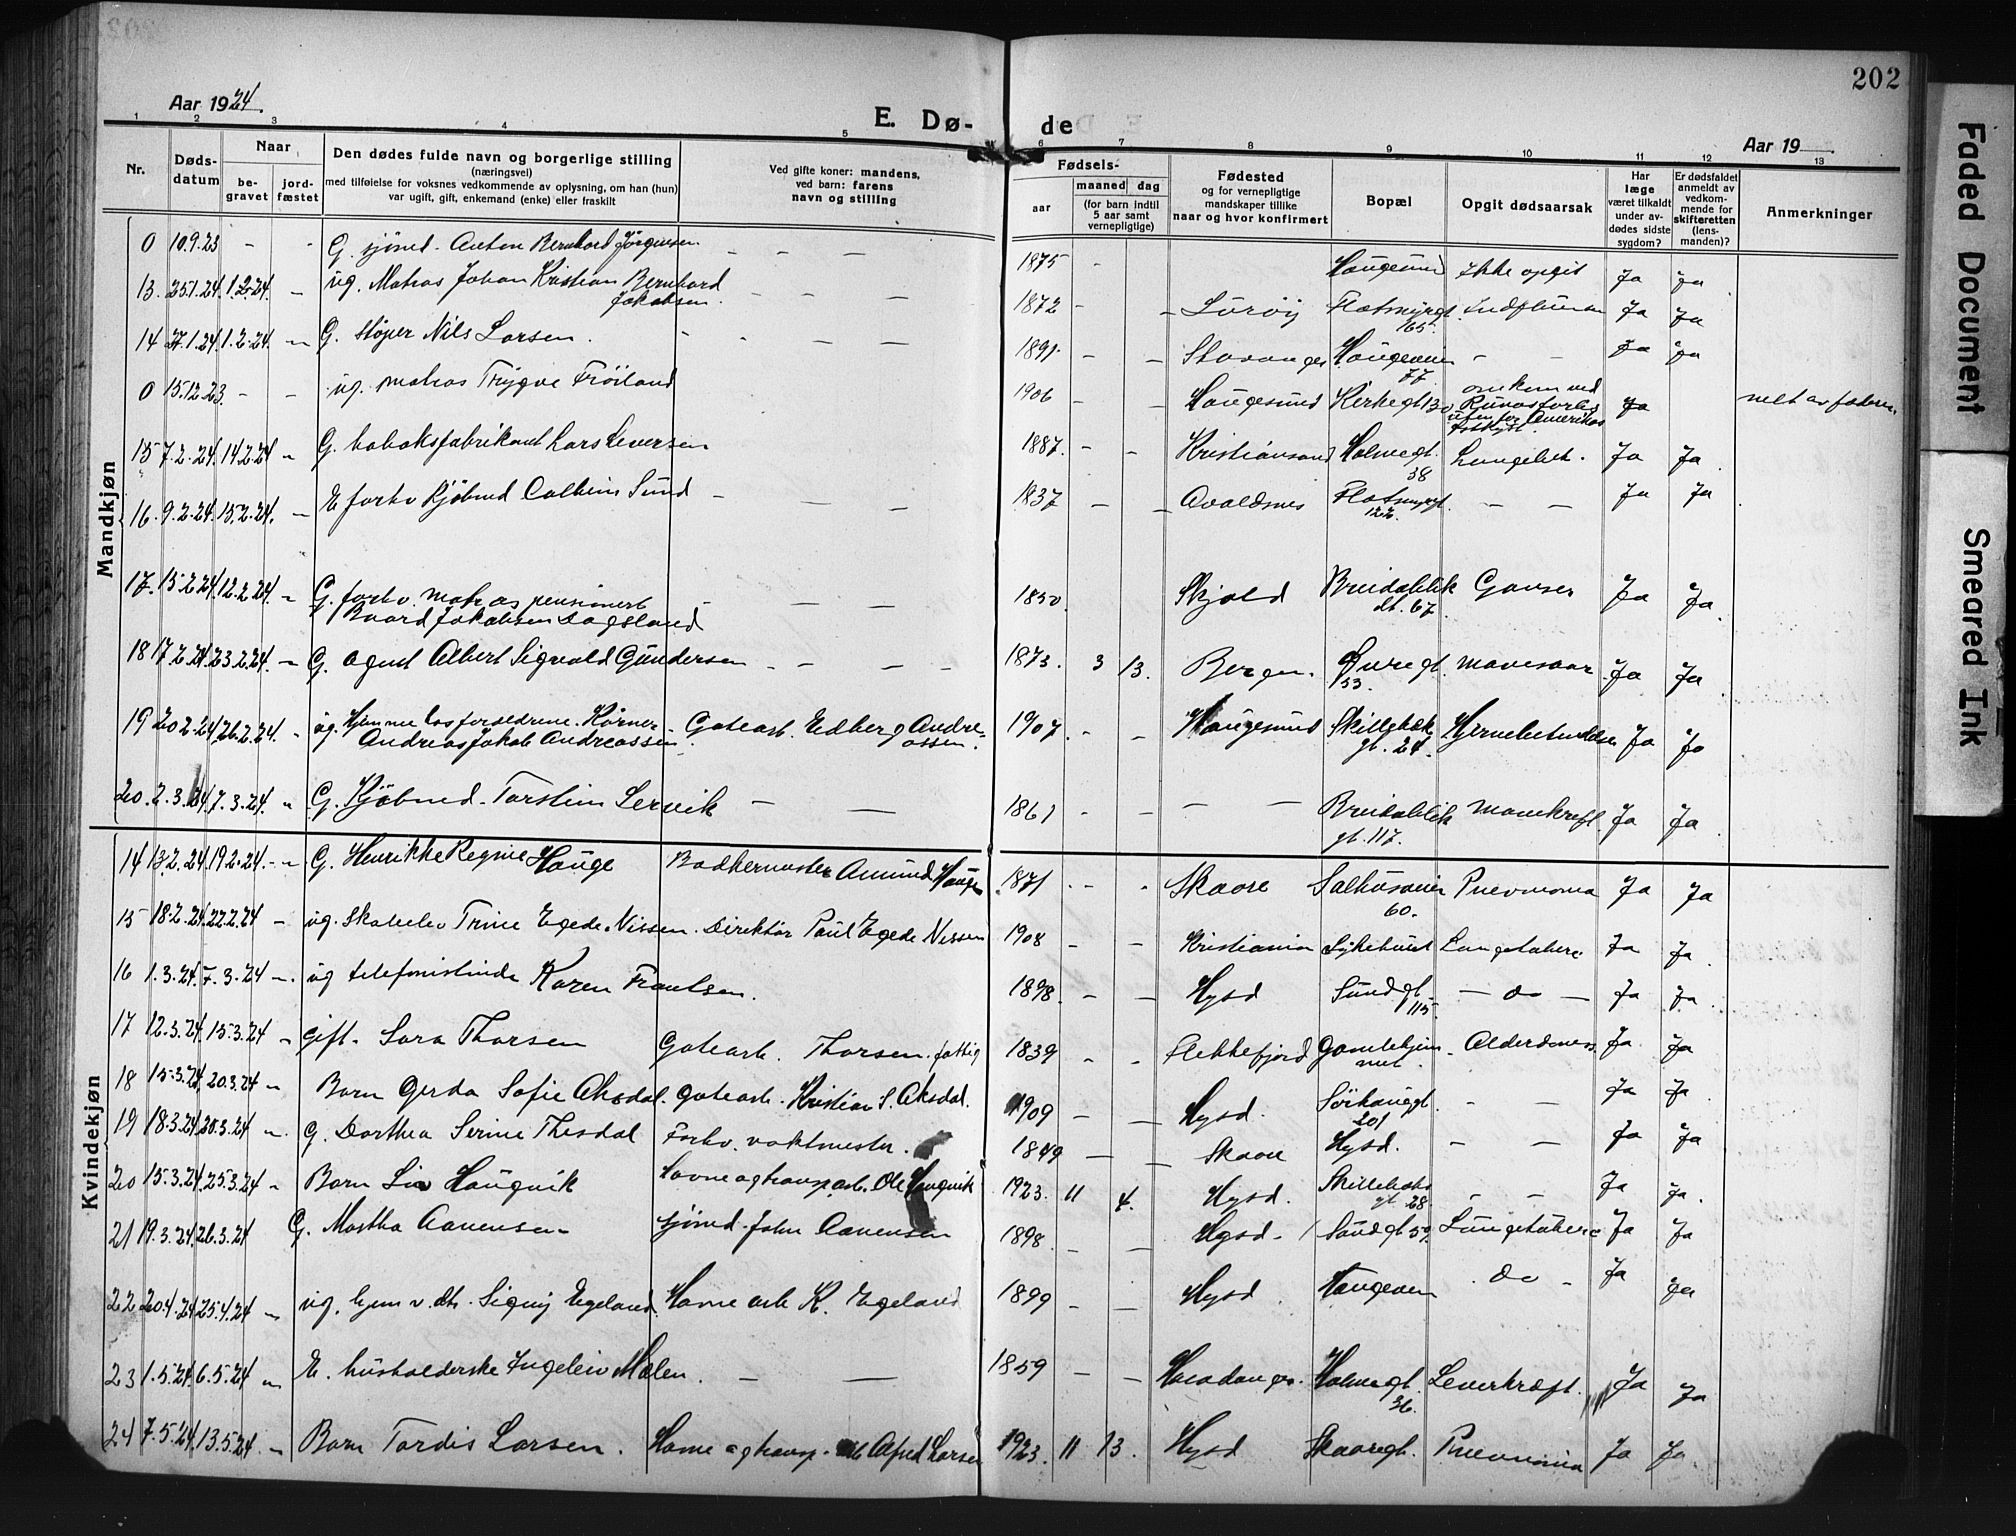 202
Aar 1924.
E. Dø-
de
Aar 19
1 2 3 4 5 6 7 8 9 10 11 12 13
Nr.
Døds-
datum
Naar
be-
gravet
jord-
fæstet
Den dødes fulde navn og borgerlige stilling
(næringsvei)
med tilføielse for voksnes vedkommende av oplysning, om han (hun)
var ugift, gift, enkemand (enke) eller fraskilt
Ved gifte koner: mandens,
ved barn: farens
navn og stilling
Fødsels-
aar
maaned
dag
(for barn indtil
5 aar samt
vernepligtige)
Fødested
og for vernepligtige
mandskaper tillike
naar og hvor konfirmert
Bopæl
Opgit dødsaarsak
Har
læge
været tilkaldt
under av-
dødes sidste
sygdom?
Er dødsfaldet
anmeldt av
vedkom-
mende for
skifteretten
(lens-
manden)?
Anmerkninger
Mandkjøn
0 10.9.23 - - G. sjömd. Anton Bernhard Jörgensen - - - 1875 - Haugesund Ikke opgit Ja Ja
13. 25.1.24. 1.2.24. - ug. Matros Johan Kristian Bernhard
Jakobsen. - - - 1872 - - Luröy Flotmyrgt.
165. Ja Ja
14 27.1.24. 1.2.24. - G. Støper Nils Larsen. - - - 1891. - - Stavanger Haugeveien
77 - - Ja Ja
0 15.12.23. - - ug. matros Trygve Fröiland 1906 - - Haugesund Kirkegt 130 omkom ved
utenfor Amerikas
Ja melt av faderen.
15 7.2.24. 14.2.24 - G. tobaksfabrikant Lars Iversen 1887. - - Kristiansand Holmegt.
38 Lungebet. Ja Ja
16. 9.2.24. 15.2.24. - E forhv Kjöbmd Cathein Sund - - - 1837 - - Avaldsnes Flotmyrgt.
122. - - Ja Ja
17. 15.2.24. 12.2.24. - G. forhv. matros pensionert
Baard Jakobsen Dagsland - - - 1850. Skjold Breidablik
gt. 67. Ja Ja
18 17.2.24. 23.2.24. - G. agent Albert Sigvald Gundersen - - - - 1873. 3 13. Bergen. Öuregt.
153. Mavesaar Ja Ja
19 20.2.24. 26.2.24. - ug. Hjemme hos foreldrene.
Andreas Jakob Andreassen Gatearb. Edberg Andre-
assen. 1907 - - Haugesund Skillebek
gt. 24. Hjernebetændelse Ja Ja
20. 2.3.24. 7.3.24. - G. Kjöbmd. Torstein Lervik - - 1861 - - - - Breidablik
gt. 117. Mavekreft. Ja Ja
Kvindekjøn
14 13.2.24. 19.2.24. - G. Henrikke Regine Hauge Bødkermester Amund Hauge 1871 - - - Skaare Salhusveien
60. Pneumonia Ja Ja
15 18.2.24. 22.2.24 - ug. Skoleelev Trine Egede-Nissen. Direktör Paul Egede Nissen 1908 - - Kristiania Sykehuset Lungetuberc Ja Ja
16 1.3.24. 7.3.24 - ug telefonistinde Karen Frantsen. 1898. - - Hgsd Sundgt.
115. - do - Ja Ja
17 12.3.24. 15.3.24 - gift. Sara Thorsen Gatearb. Thorsen. fattig 1839 - - Flekkefjord Gamlehjem-
met. Alderdomss. Ja Ja
18 15.3.24. 20.3.24 - Barn Gerda Sofie Aksdal. Gatearb. Kristian S. Aksdal. 1909 - - Hgsd. Sörhauggt.
201 - - Ja Ja
19 18.3.24. 20.3.24 - G. Dorthea Serine Thesdal Forhv. vaktmester. 1849 - - Skaare Hgsd. - - Ja Ja
20 15.3.24. 25.3.24 - Barn Liv Haugvik Havne og transp arb. Ole Haugvik 1923. 11 4. Hgsd. Skillebeks
gt. 28. - - Ja Ja.
21 19.3.24. 26.3.24 G. Martha Aanensen Sjömd. John Aanensen 1898. - - Hgsd. Sundgt 59. Lungetuberc Ja Ja
22 20.4.24 25.4.24 - ug. hjemv. dtr. Signy Egeland. Havne arb K. Egeland 1899 - - Hgsd. Haugeveien do - Ja Ja
23 1.5.24. 6.5.24 - E. husholderske Ingeleiv Mælen. - - 1859 - - Hardanger. Holmegt.
36. Leverkræft. Ja Ja
24 7.5.24. 13.5.24. - Barn Tordis Larsen. Havne og transp. arb Alfred Larsen 1923. 11 13. Hgsd Skaaregt. Pneumonia Ja Ja.
Faded Document
Smeared Ink